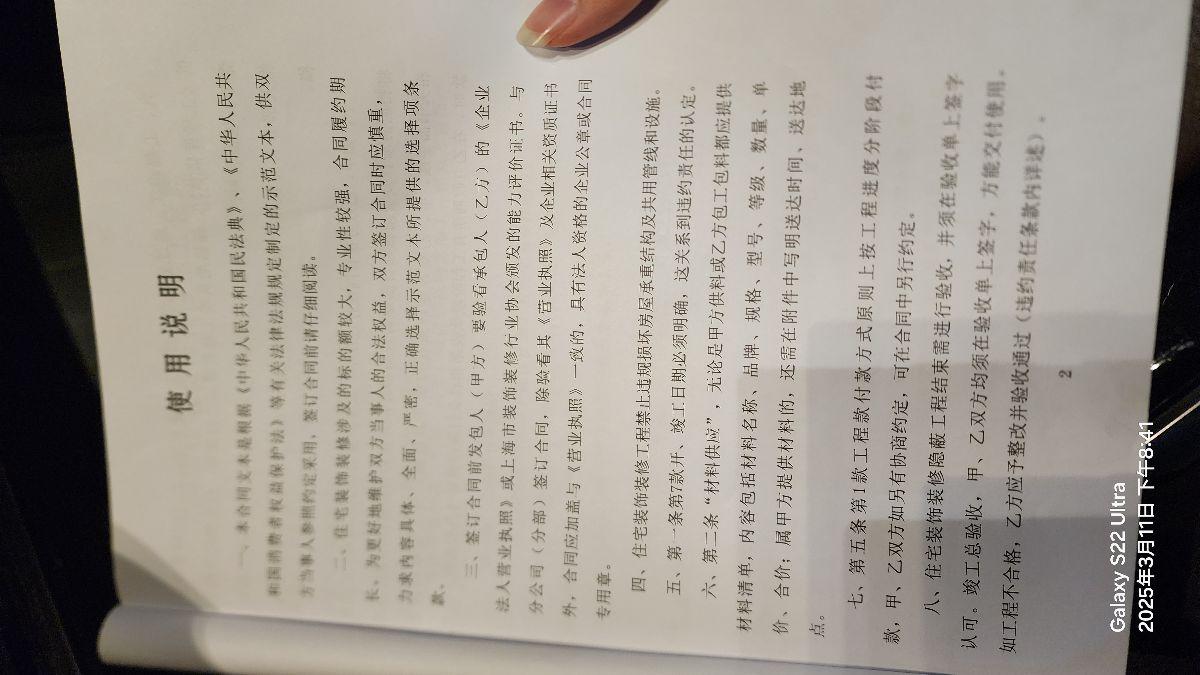 使用说明
一、本合同文本是根据《中华人民共和国民法典》、《中华人民共
和国消费者权益保护法》等有关法律法规规定制定的示范文本，供双
方当事人参照约定采用，签订合同前请仔细阅读。
二、住宅装饰装修涉及的标的额较大，专业性较强，合同履约期
长，为更好地维护双方当事人的合法权益，双方签订合同时应慎重，
力求内容具体、全面、严密，正确选择示范文本所提供的选择项条
款。
三、签订合同前发包人（甲方）要验看承包人（乙方）的《企业
法人营业执照》或上海市装饰装修行业协会颁发的能力评价证书。与
分公司（分部）签订合同，除验看其《营业执照》及企业相关资质证书
外，合同应加盖与《营业执照》一致的，具有法人资格的企业公章或合同
专用章。
四、住宅装饰装修工程禁止违规损坏房屋承重结构及共用管线和设施。
五、第一条第7款开、竣工日期必须明确，这关系到违约责任的认定。
六、第二条“材料供应”，无论是甲方供料或乙方包工包料都应提供
材料清单，内容包括材料名称、品牌、规格、型号、等级、数量、单
价、合价；属甲方提供材料的，还需在附件中写明送达时间、送达地
点。
七、第五条第1款工程款付款方式原则上按工程进度分阶段付
款，甲、乙双方如另有协商约定，可在合同中另行约定。
八、住宅装饰装修隐蔽工程结束需进行验收，并须在验收单上签字
认可。竣工总验收，甲、乙双方均须在验收单上签字，方能交付使用。
如工程不合格，乙方应予整改并验收通过（违约责任条款内详述）。
2
Galaxy S22 Ultra
2025年3月11日 下午8:41